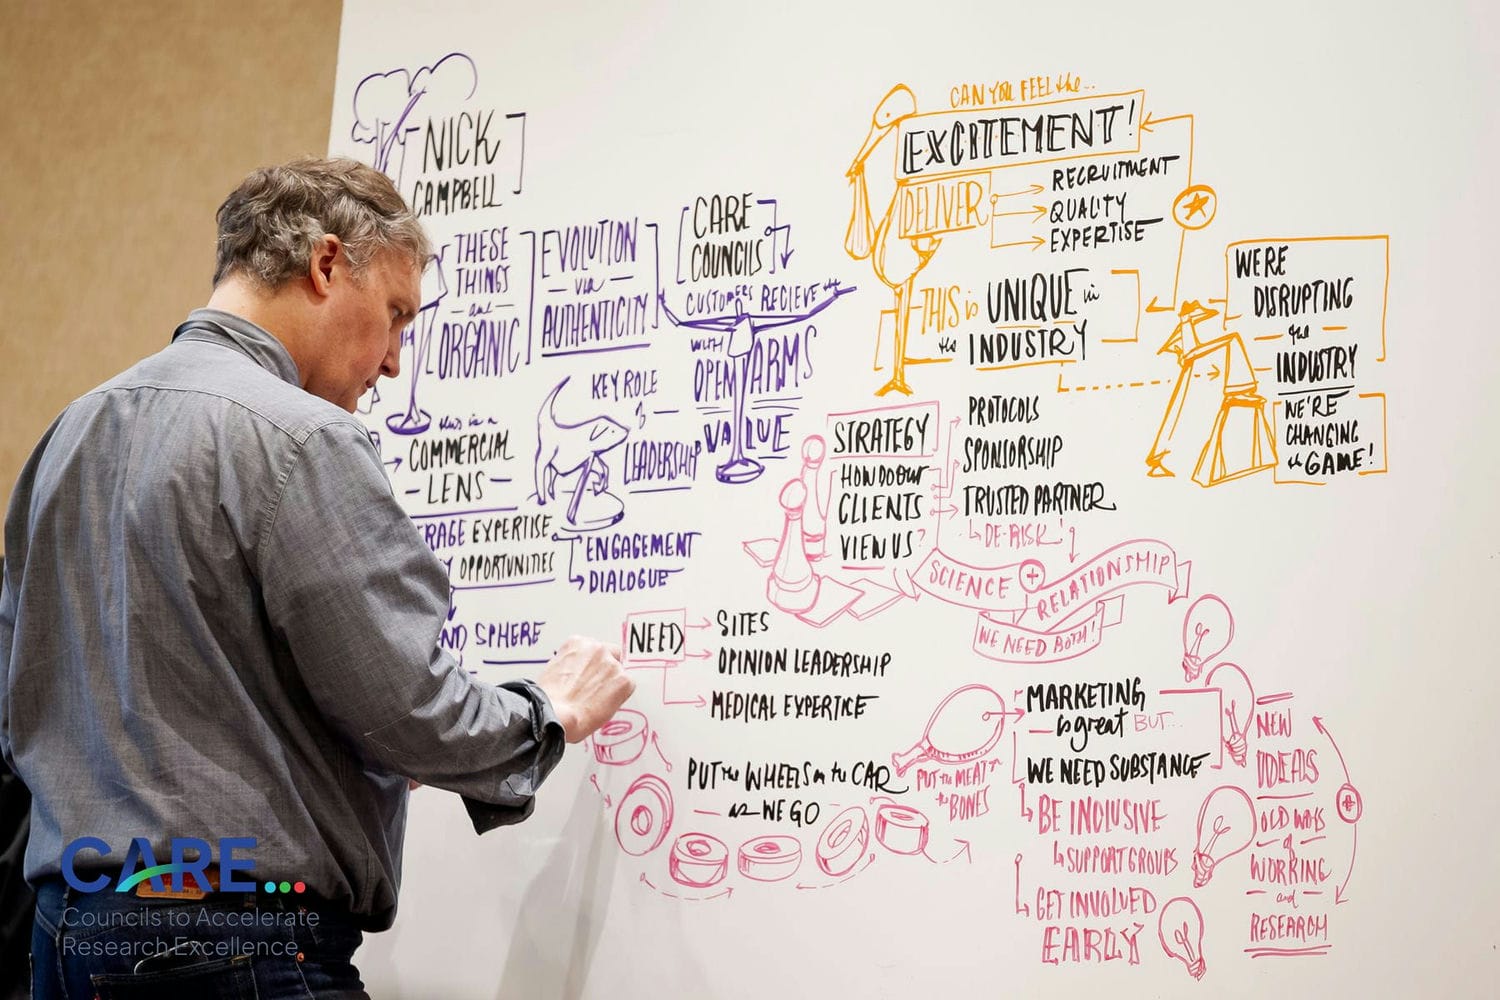 NICK
CAMPBELL
THESE
THINGS
and
ORGANIC
EVOLUTION
via
AUTHENTICITY
CARE
COUNCILS
CUSTOMERS RECIEVE the
WITH
OPEN ARMS
VALUE
this is a
COMMERCIAL
LENS
KEY ROLE
of
LEADERSHIP
ERAGE EXPERTISE
OPPORTUNITIES
ENGAGEMENT
DIALOGUE
ND SPHERE
CAN YOU FEEL the...
EXCITEMENT!
DELIVER
RECRUITMENT
QUALITY
EXPERTISE
THIS is UNIQUE in
the INDUSTRY
WERE
DISRUPTING
the
INDUSTRY
WE'RE
CHANGING
the GAME!
STRATEGY
HOW DO OUR
CLIENTS
VIEW US?
PROTOCOLS
SPONSORSHIP
TRUSTED PARTNER
DE-RISK!
SCIENCE + RELATIONSHIP
WE NEED BOTH!
NEED
SITES
OPINION LEADERSHIP
MEDICAL EXPERTICE
PUT the WHEELS on the CAR
as WE GO
PUT the MEAT
to the
BONES
MARKETING
is great BUT...
WE NEED SUBSTANCE
BE INCLUSIVE
SUPPORT GROUPS
GET INVOLVED
EARLY
NEW
IDEAS
OLD WAYS
of
WORKING
and
RESEARCH
CARE...
Councils to Accelerate
Research Excellence